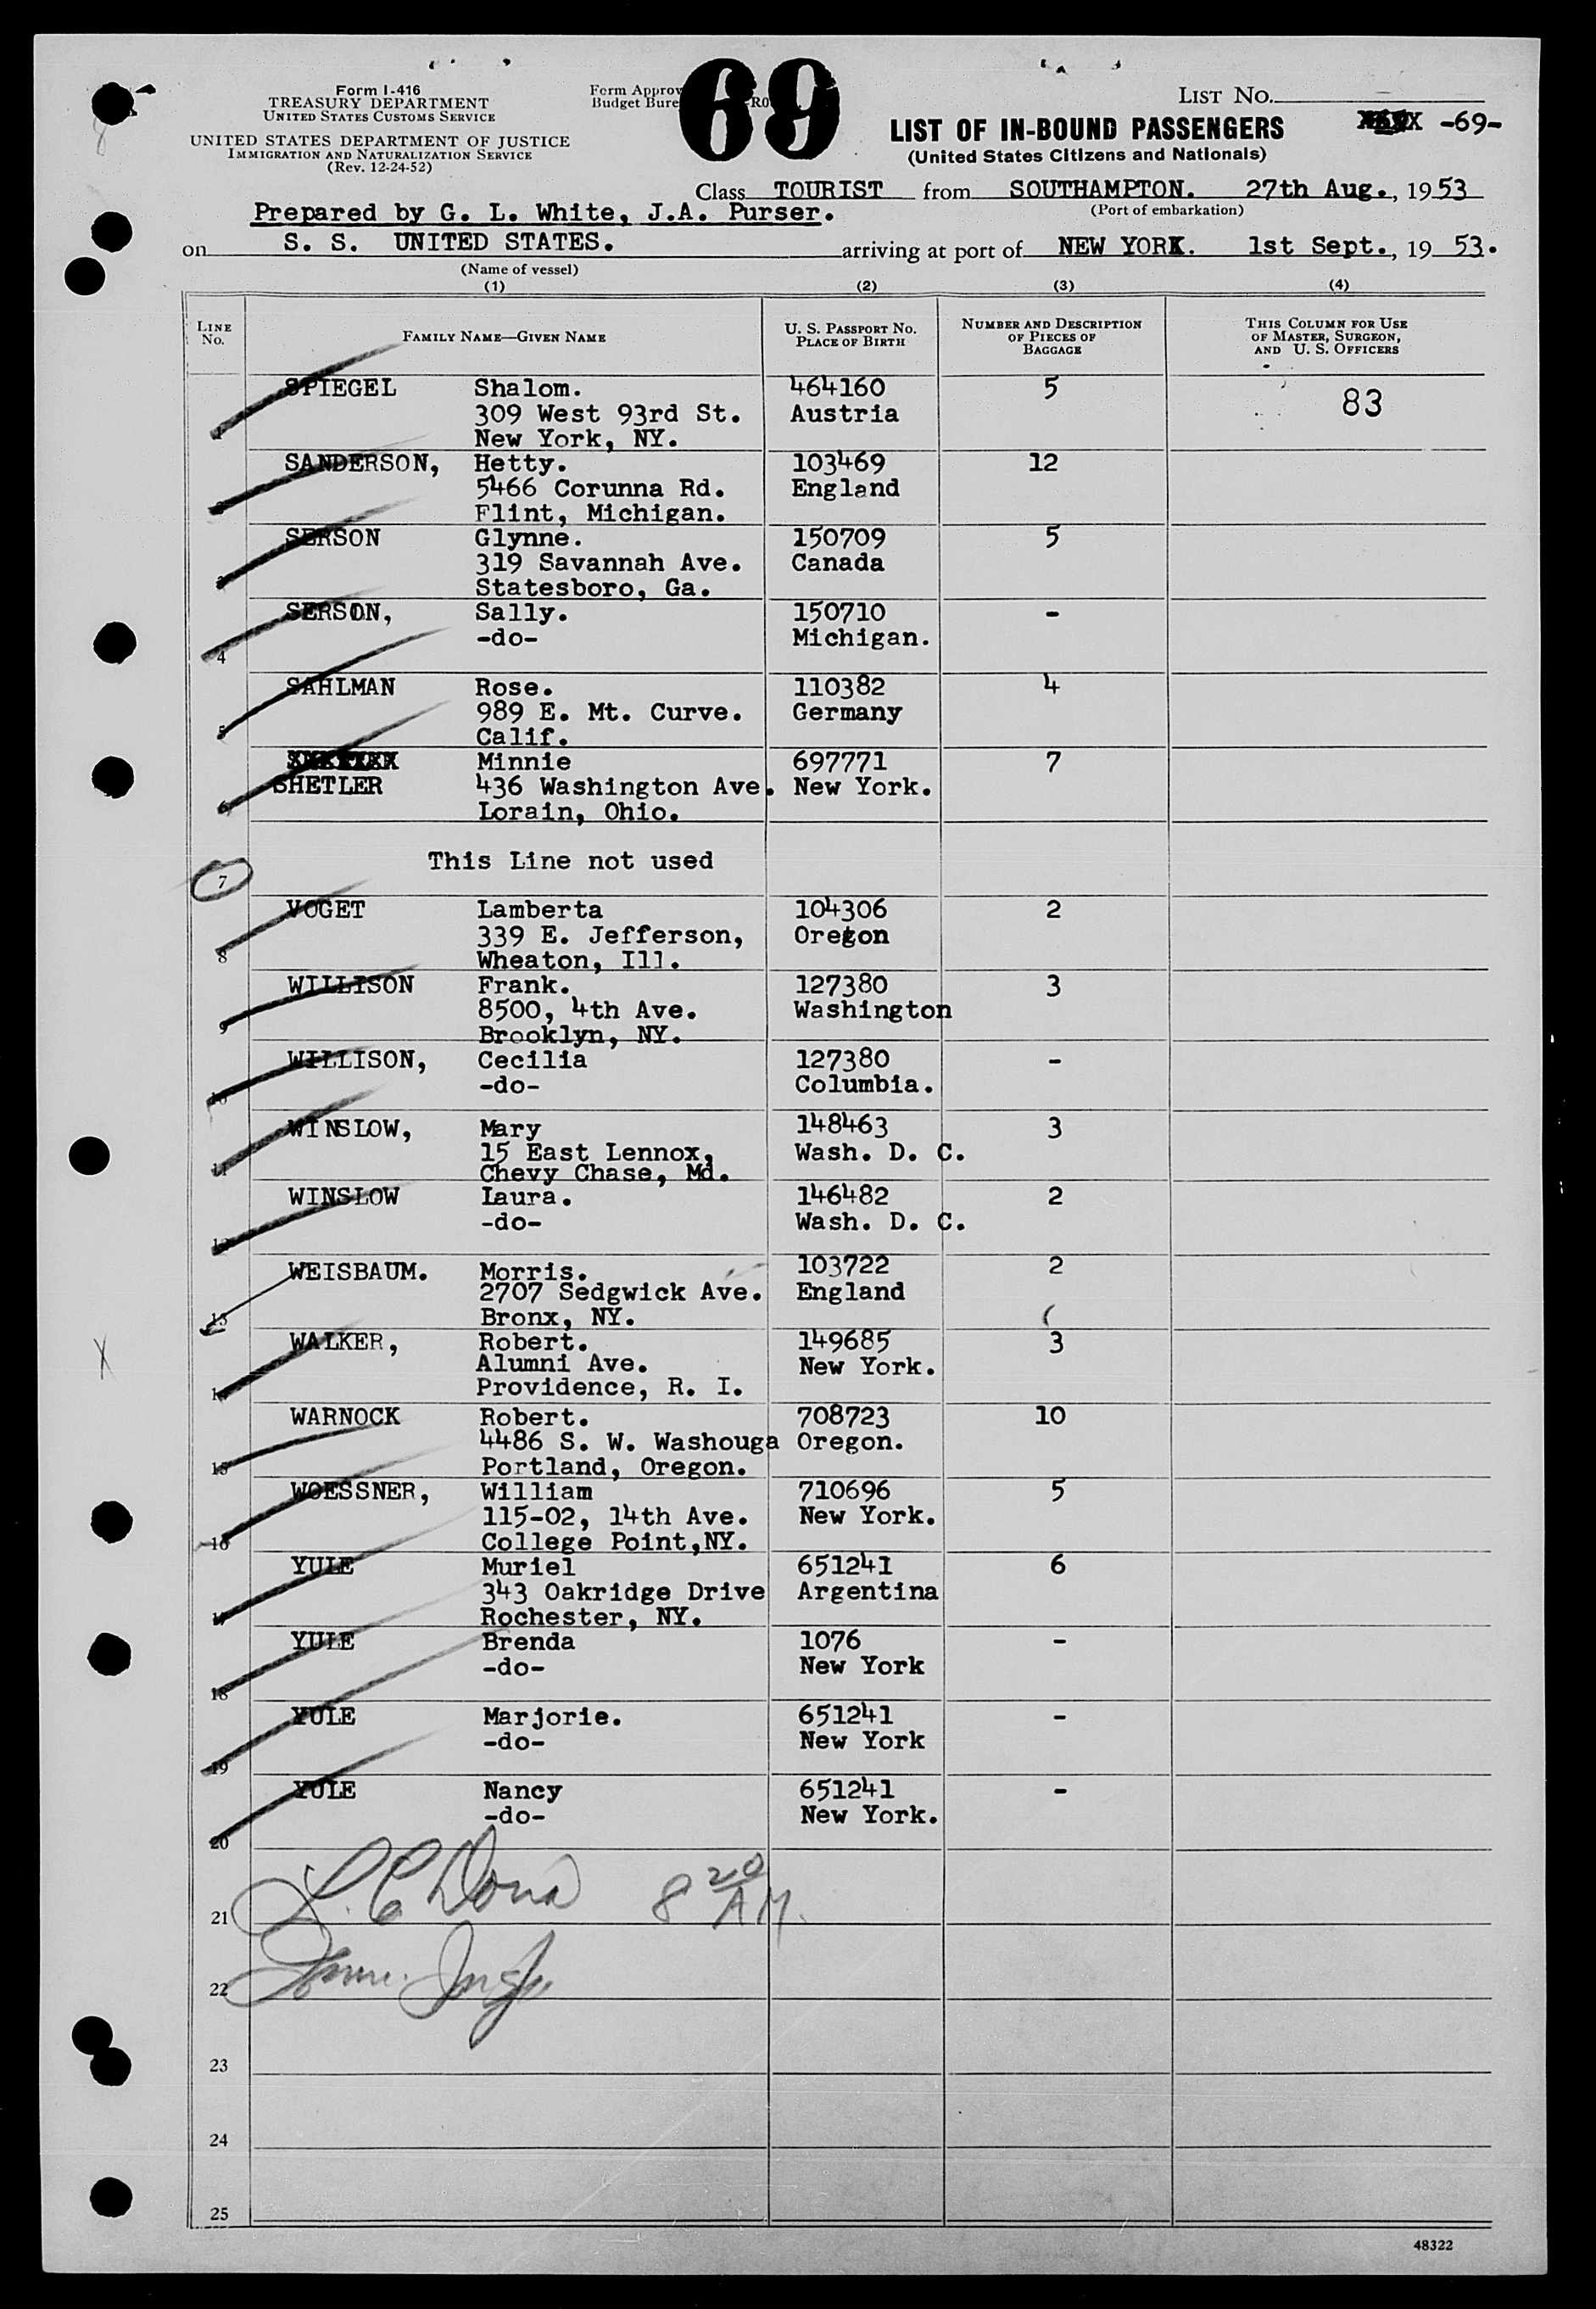 69
Form I-416
TREASURY DEPARTMENT
UNITED STATES CUSTOMS SERVICE
UNITED STATES DEPARTMENT OF JUSTICE
IMMIGRATION AND NATURALIZATION SERVICE
(Rev. 12-24-52)
Form Approv
Budget Bure
LIST NO.
LIST OF IN-BOUND PASSENGERS -69-
(United States Citizens and Nationals)
Class TOURIST from SOUTHAMPTON. 27th Aug., 1953
Prepared by G. L. White, J.A. Purser. (Port of embarkation)
on S. S. UNITED STATES. arriving at port of NEW YORK. 1st Sept., 19 53.
(Name of vessel)
(1) (2) (3) (4)
LINE No. FAMILY NAME—GIVEN NAME U. S. PASSPORT NO. PLACE OF BIRTH NUMBER AND DESCRIPTION OF PIECES OF BAGGAGE THIS COLUMN FOR USE OF MASTER, SURGEON, AND U. S. OFFICERS
SPIEGEL Shalom. 464160 5 83
309 West 93rd St. Austria
1 New York, NY.
SANDERSON, Hetty. 103469 12
5466 Corunna Rd. England
2 Flint, Michigan.
SERSON Glynne. 150709 5
319 Savannah Ave. Canada
3 Statesboro, Ga.
SERSON, Sally. 150710 -
-do- Michigan.
4
SAHLMAN Rose. 110382 4
989 E. Mt. Curve. Germany
5 Calif.
Minnie 697771 7
SHETLER 436 Washington Ave. New York.
6 Lorain, Ohio.
This Line not used
7
VOGET Lamberta 104306 2
339 E. Jefferson, Oregon
8 Wheaton, Ill.
WILLISON Frank. 127380 3
8500, 4th Ave. Washington
9 Brooklyn, NY.
WILLISON, Cecilia 127380 -
-do- Columbia.
10
WINSLOW, Mary 148463 3
15 East Lennox, Wash. D. C.
11 Chevy Chase, Md.
WINSLOW Laura. 146482 2
-do- Wash. D. C.
12
WEISBAUM. Morris. 103722 2
2707 Sedgwick Ave. England
13 Bronx, NY.
WALKER, Robert. 149685 3
Alumni Ave. New York.
14 Providence, R. I.
WARNOCK Robert. 708723 10
4486 S. W. Washouga Oregon.
15 Portland, Oregon.
WOESSNER, William 710696 5
115-02, 14th Ave. New York.
16 College Point,NY.
YULE Muriel 651241 6
343 Oakridge Drive Argentina
17 Rochester, NY.
YULE Brenda 1076 -
-do- New York
18
YULE Marjorie. 651241 -
-do- New York
19
YULE Nancy 651241 -
-do- New York.
20
8 20 AM.
21
22
23
24
25
48322